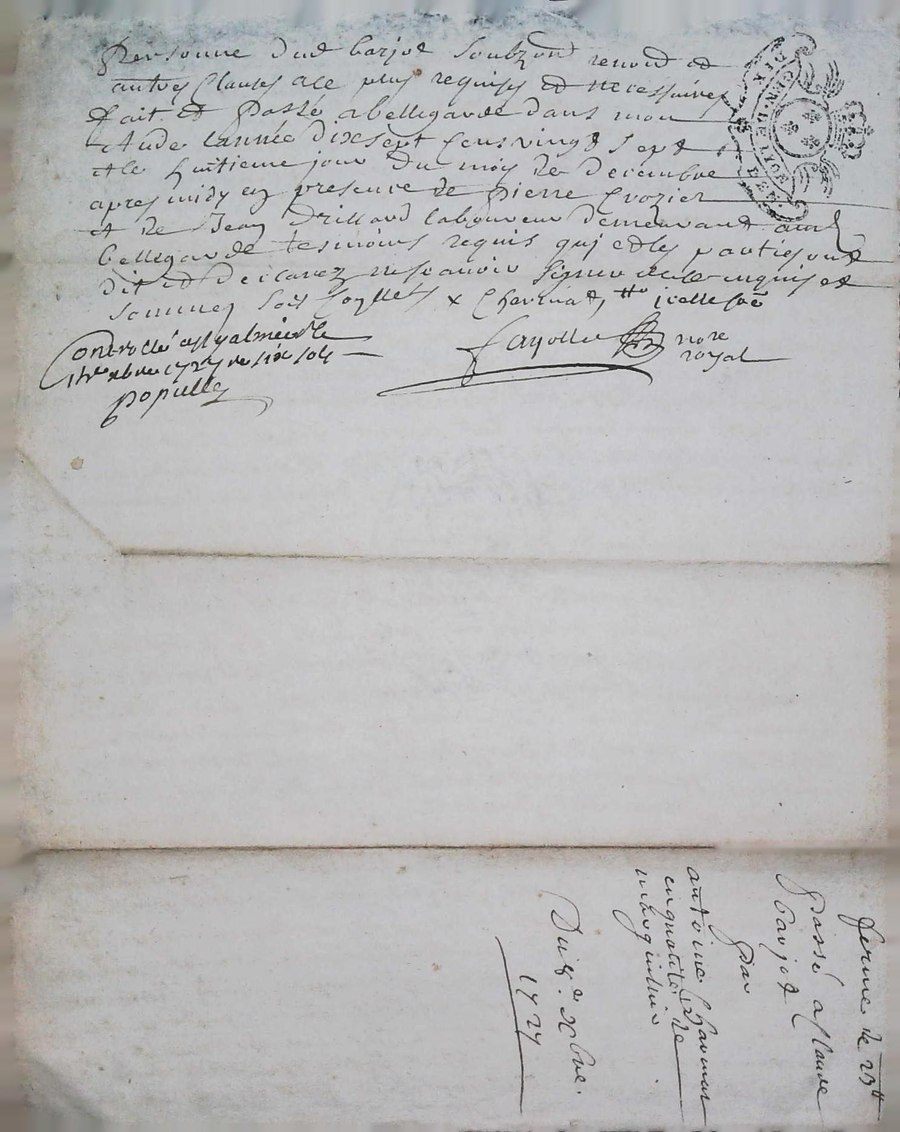 Personne dud barjot soubz renond et
autres Clauses ace plus requises et necessaires
fait et passé a bellegarde dans mon
etude l'année dix sept cens vingt sept
et le huitieme jour du mois de decembre
apres midy en presence de pierre Crozier
et de Jean Drillard laboureur demeurant aud
bellegarde tesmoins requis qui et les parties ont
dit et declarez ne scavoir signer de ce enquis et
sommez
Controllé a St galmier le
1727 six sols
populle
fayolle nore
royal
GEN. DE LYON
ferme de 23tt
passé a Claude
barjot
par
antoine
en qualité de
marguillier
Du 8e xbre.
1727